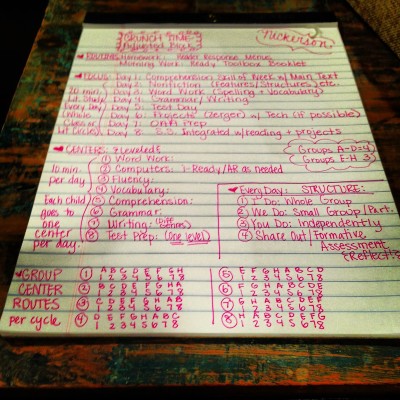 CRUNCH TIME
Tuckerson
ROUTINE: Homework: Reader Response Menus
Morning Work: Ready Toolbox Booklet
FOCUS: Day 1: Comprehension Skill of Week w/ Main Text
Day 2: Nonfiction (Features/Structures) etc.
20 min. Day 3: Word Work (Spelling + Vocabulary)
Lit. Study Day 4: Grammar/Writing
Every Day Day 5: Test Day
(Whole Day 6: Projects (Zerger) w/ Tech (if possible)
Class or Day 7: Prep
Lit Circles) Day 8: S.S. Integrated w/ reading + projects
CENTERS: *Leveled*
Groups A-D=4
Groups E-H 3
① Word Work:
10 min. ② Computers: I-Ready/AR as needed
per day ③ Fluency:
④ Vocabulary:
Each child ⑤ Comprehension:
goes to ⑥ Grammar:
one ⑦ Writing: (Diff. Genres)
center ⑧ Test Prep: (One level)
per day.
Every Day: STRUCTURE:
① I Do: Whole Group
② We Do: Small Group/Part.
③ You Do: Independently
④ Share Out/Formative
Assessment
(Reflect)
GROUP ① A B C D E F G H
1 2 3 4 5 6 7 8
CENTER ② B C D E F G H A
1 2 3 4 5 6 7 8
ROUTES ③ C D E F G H A B
1 2 3 4 5 6 7 8
per cycle ④ D E F G H A B C
1 2 3 4 5 6 7 8
⑤ E F G H A B C D
1 2 3 4 5 6 7 8
⑥ F G H A B C D E
1 2 3 4 5 6 7 8
⑦ G H A B C D E F
1 2 3 4 5 6 7 8
⑧ H A B C D E F G
1 2 3 4 5 6 7 8